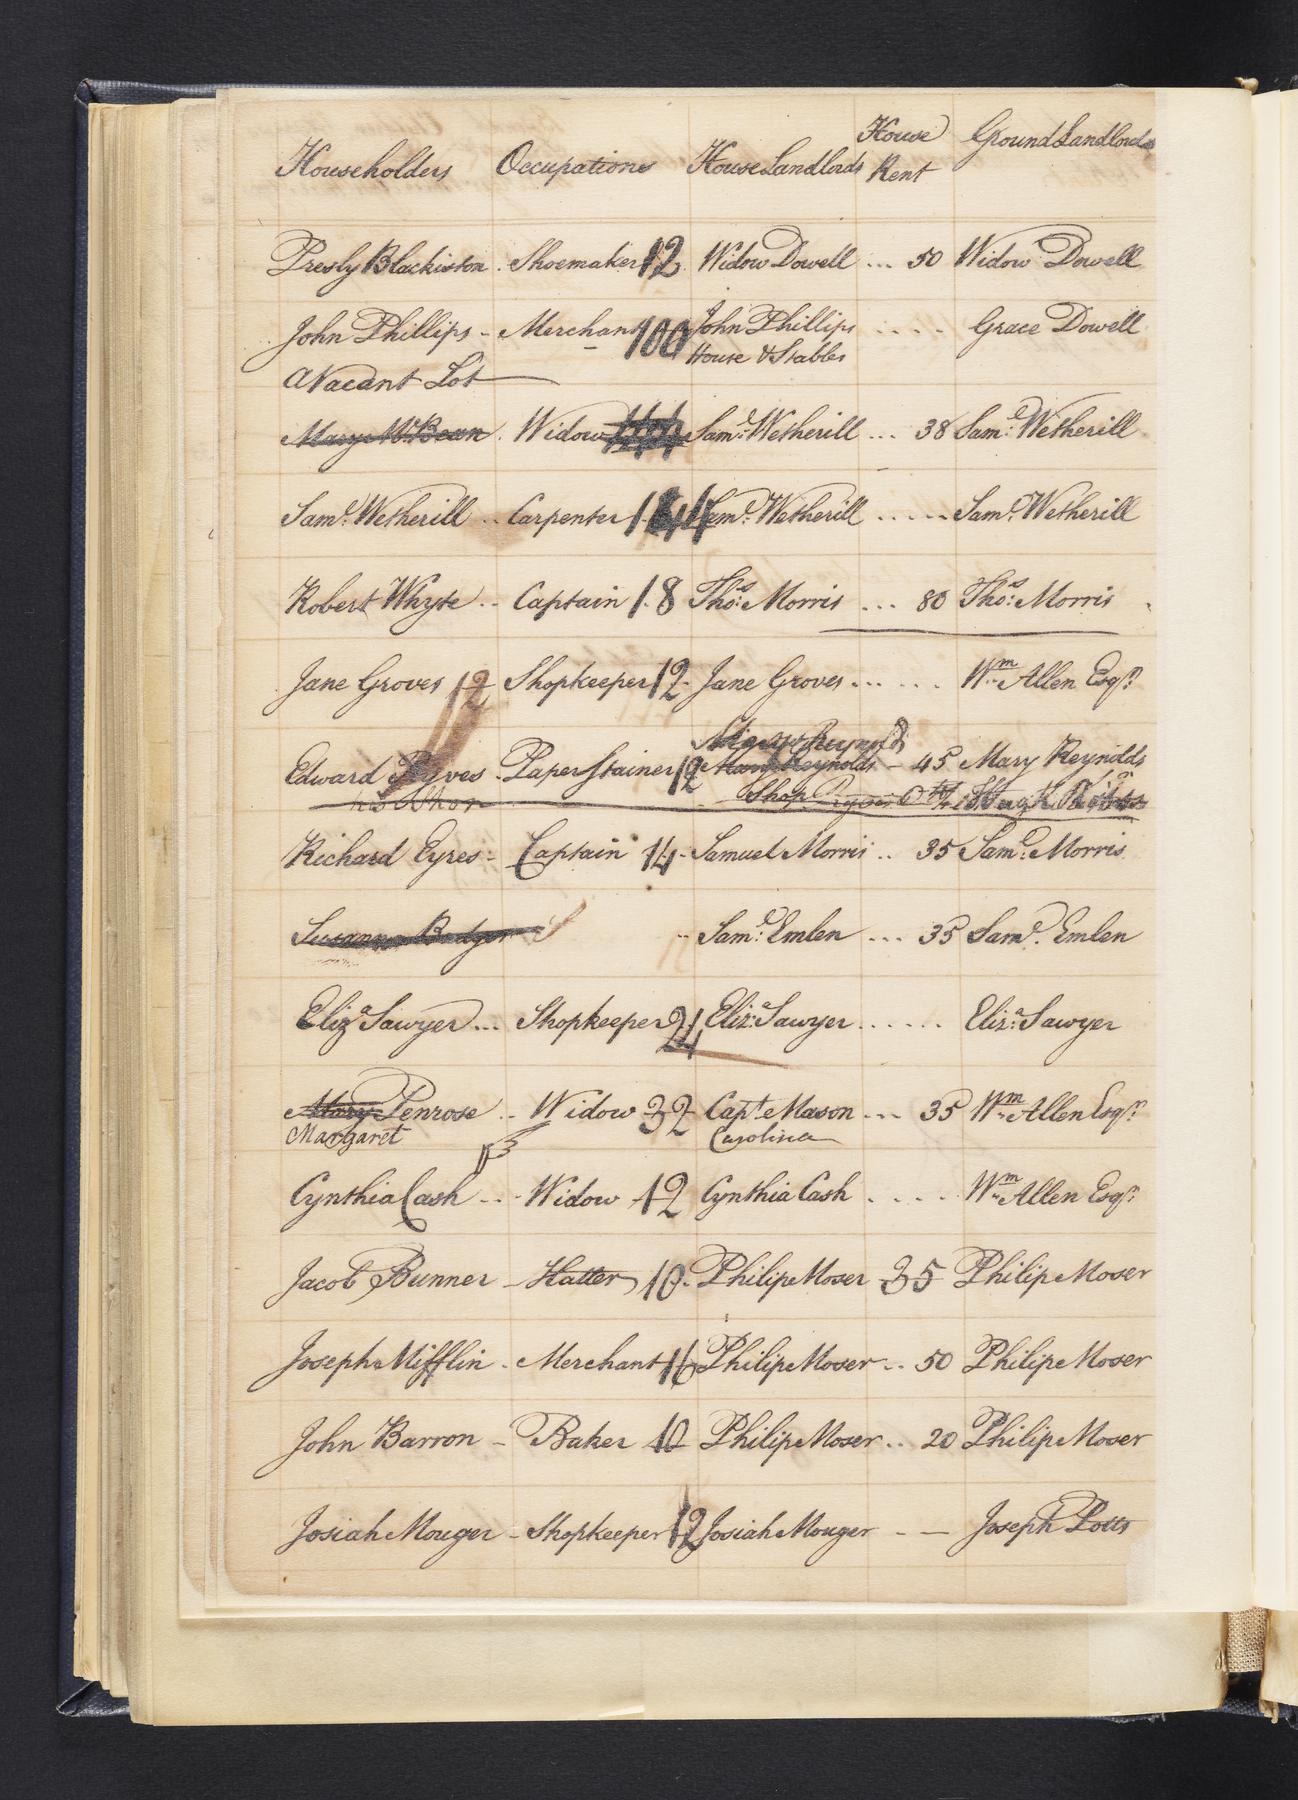 Householders Occupations House Landlords House Rent Ground Landlords
Presly Blackiston . Shoemaker 12 Widow Dowell ... 50 Widow Dowell
John Phillips - Merchant 100 John Phillips .... Grace Dowell
House & Stables
A Vacant Lot
Mary McBean . Widow Saml. Wetherill ... 38 Saml. Wetherill
Saml. Wetherill .. Carpenter Saml. Wetherill ..... Saml. Wetherill
Robert Whyte .. Captain 18 Thos. Morris ... 80 Thos. Morris
Jane Groves 12 Shopkeeper 12 Jane Groves ... ... Wm. Allen Esqr.
Edward Ryves . Paper Stainer 12 Mary Reynolds - 45 Mary Reynolds
his Shop Shop Ryves
Richard Eyres - Captain 14 - Samuel Morris .. 35 Saml. Morris
Susanna Badger .. Saml. Emlen ... 35 Saml. Emlen
Eliza Sawyer ... Shopkeeper 24 Eliza. Sawyer ...... Eliza. Sawyer
Mary Penrose .. Widow 32 Capt. Mason ... 35 Wm. Allen Esqr.
Margaret Carolina
Cynthia Cash .. - Widow 12 Cynthia Cash .... Wm. Allen Esqr.
Jacob Bunner - Hatter 10 - Philip Moser 35 Philip Moser
Joseph Mifflin - Merchant 16 Philip Moser .. 50 Philip Moser
John Barron - Baker 10 Philip Moser .. 20 Philip Moser
Josiah Mouger - Shopkeeper 12 Josiah Mouger - - Joseph Potts